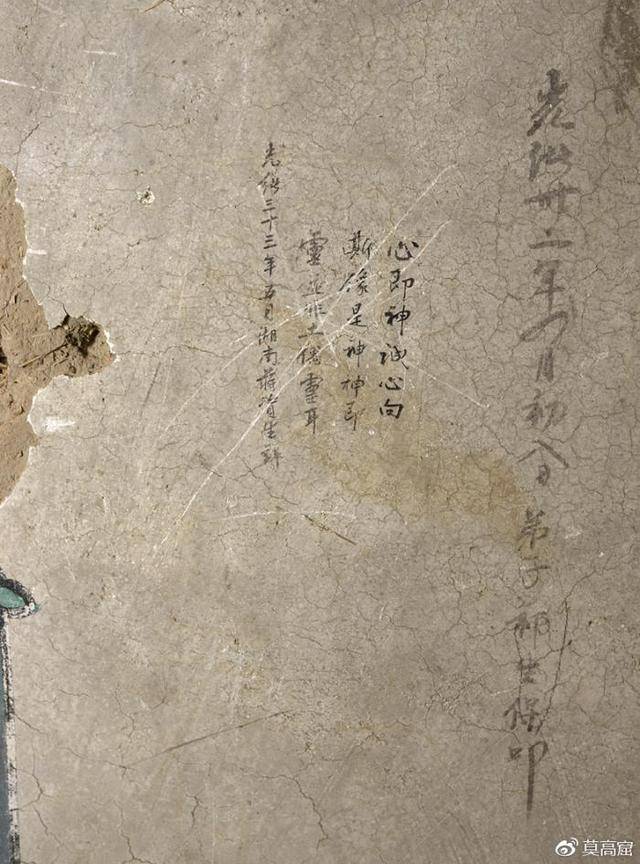 光緒卅二年四月初八日 弟子生保叩
心即神誠心向
斯像是神神即
靈並非土偶靈耳
光緒三十三年五月湖南蔣資生
莫高窟